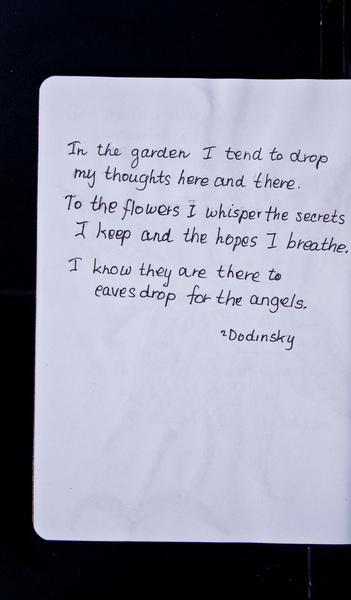 In the garden I tend to drop
my thoughts here and there.
To the flowers I whisper the secrets
I keep and the hopes I breathe.
I know they are there to
eavesdrop for the angels.
~Dodinsky